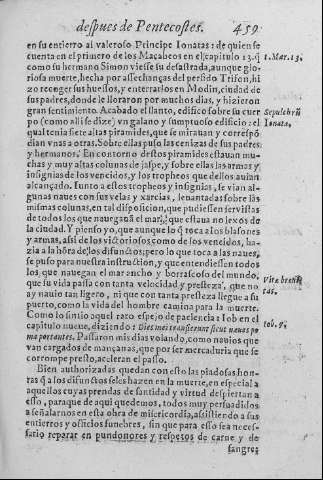 despues de Pentecostes. 459
en su entierro al valeroso Principe Ionatas: de quien se
cuenta en el primero de los Macabeos en el capitulo 13. q̃ 1. Mar. 13.
como su hermano Simon viesse su desastrada, aunque glo-
riosa muerte, hecha por assechanças del perfido Trifon, hi
zo recoger sus huessos, y enterrarlos en Modin, ciudad de
sus padres, donde le lloraron por muchos dias, y hizieron
gran sentimiento. Acabado el llanto, edificò sobre su cuer Sepulchro
po (como alli se dize) vn galano y sumptuoso edificio: el Ionatas,
qual tenia siete altas piramides, que se mirauan y correspõ
dian vnas a otras. Sobre ellas puso las cenizas de sus padres
y hermanos. En contorno destos piramides estauan mu-
chas y muy altas colunas de jaspe, y sobre ellas las armas y
insignias de los vencidos, y los tropheos que dellos auian
alcançado. Iunto a estos tropheos y insignias, se vian al-
gunas naues con sus velas y xarcias, leuantadas sobre las
mismas colunas, en tal disposicion, que pudiessen ser vistas
de todos los que nauegauã el mar, que estaua no lexos de
la ciudad. Y pienso yo, que aunque lo q̃ toca a los blasones
y armas, assi de los victoriosos como de los vencidos, ha-
zia a la hõra de los difunctos; pero lo que toca a las naues,
se puso para nuestra instruction, y que entendiessen todos
los que nauegan el mar ancho y borrascoso del mundo,
que su vida passa con tanta velocidad y presteza, que no Vitæ breui-
ay nauio tan ligero, ni que con tanta presteza llegue a su tas.
puerto, como la vida del hombre camina para la muerte.
Como lo sintio aquel raro espejo de paciencia: Iob en el
capitulo nueue, diziendo: Dies mei transierunt sicut naues po Iob. 9.
ma portantes. Passaron mis dias volando, como nauios que
van cargados de mançanas, que por ser mercaduria que se
corrompe presto, aceleran el passo.
Bien authorizadas quedan con esto las piadosas hon-
ras q̃ a los difunctos se les hazen en la muerte, en especial a
aquellos cuyas prendas de santidad y virtud despiertan a
esto, para que de aqui quedemos, todos muy persuadidos
a señalarnos en esta obra de misericordia, assistiendo a sus
entierros y officios funebres, sin que para esto sea neces-
sario reparar en pundonores y respetos de carne y de
sangre;